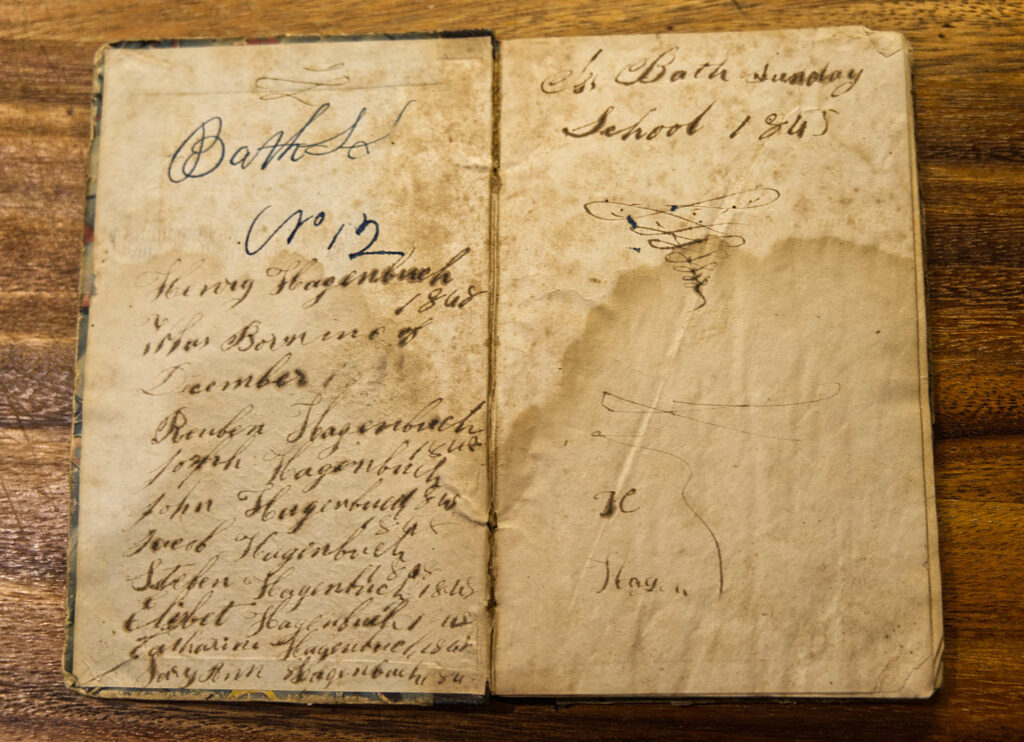 Bath S
No 12
Henry Hagenbuch
1848
Was Born in of
December
Reuben Hagenbuch
1848
Joseph Hagenbuch
John Hagenbuch
Jacob Hagenbuch
Steben Hagenbuch 1848
Elisbet Hagenbuch
Catharine Hagenbuch 1848
Mary Ann Hagenbuch
Bath Sunday
School 1845
H
Hagen